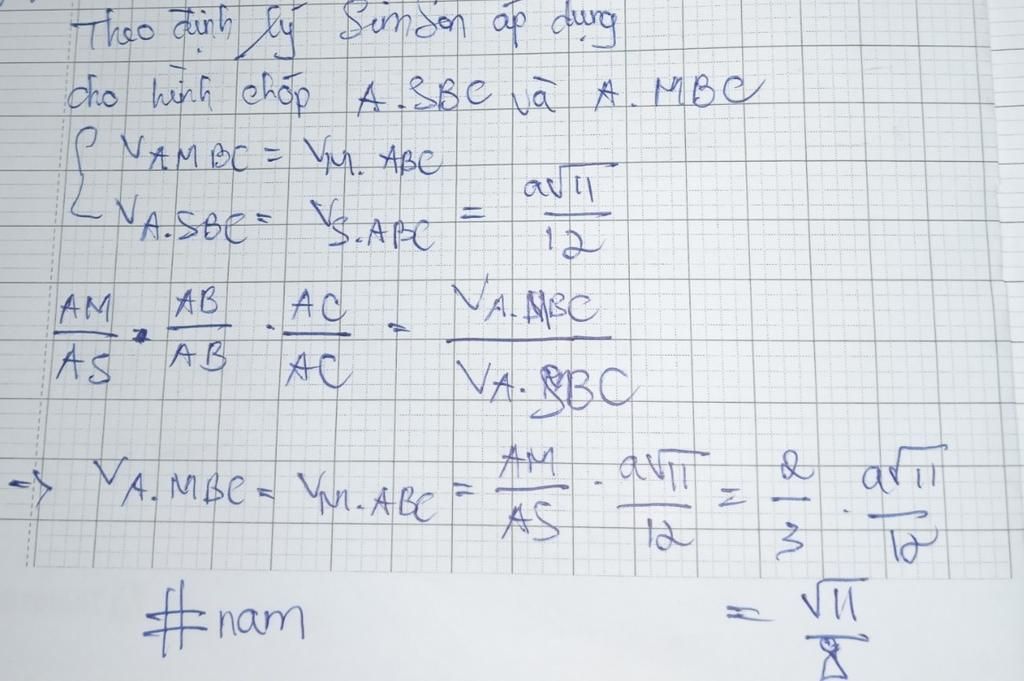 Theo định lý Simson áp dụng
cho hình chóp A.SBC và A.MBC
{ V_{AMBC} = V_{M.ABC}
V_{A.SBC} = V_{S.ABC} = \frac{a\sqrt{11}}{12}
\frac{AM}{AS} \cdot \frac{AB}{AB} \cdot \frac{AC}{AC} = \frac{V_{A.MBC}}{V_{A.SBC}}
=> V_{A.MBC} = V_{M.ABC} = \frac{AM}{AS} \cdot \frac{a\sqrt{11}}{12} = \frac{2}{3} \cdot \frac{a\sqrt{11}}{12}
#nam = \frac{\sqrt{11}}{8}